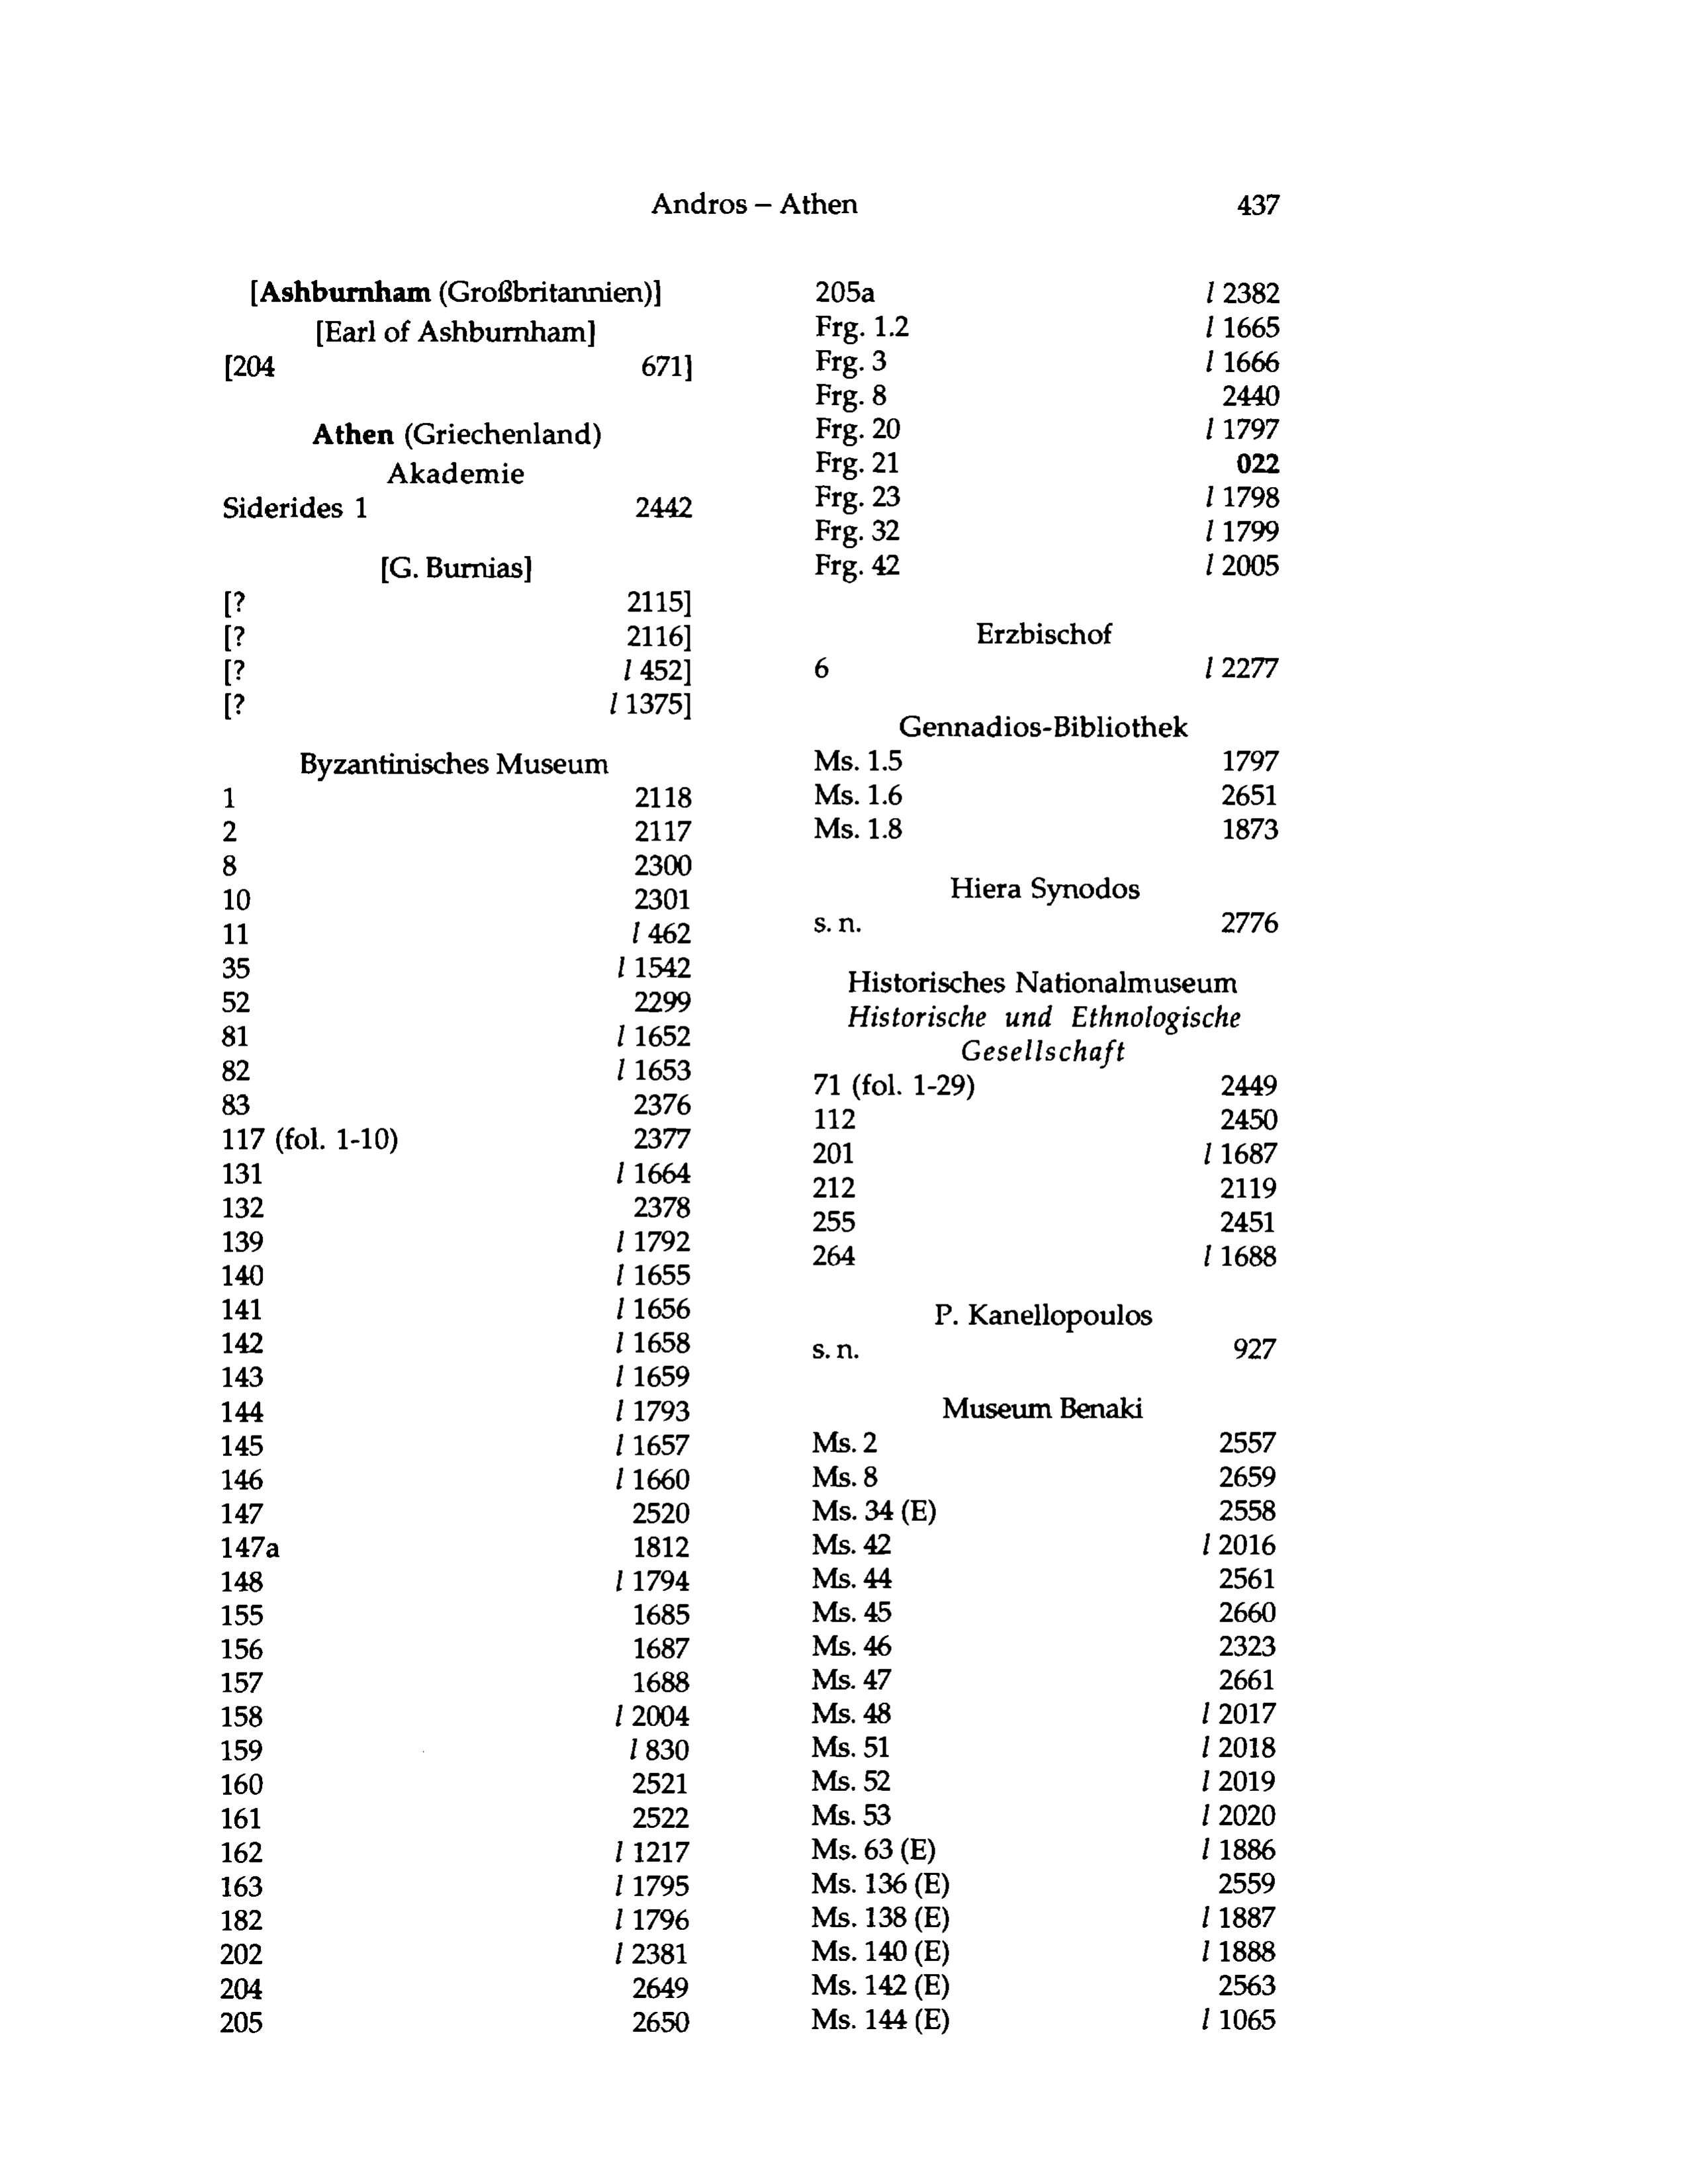 Andros – Athen 437
[Ashburnham (Großbritannien)]
[Earl of Ashburnham]
[204 671]
Athen (Griechenland)
Akademie
Siderides 1 2442
[G. Burnias]
[? 2115]
[? 2116]
[? l 452]
[? l 1375]
Byzantinisches Museum
1 2118
2 2117
8 2300
10 2301
11 l 462
35 l 1542
52 2299
81 l 1652
82 l 1653
83 2376
117 (fol. 1-10) 2377
131 l 1664
132 2378
139 l 1792
140 l 1655
141 l 1656
142 l 1658
143 l 1659
144 l 1793
145 l 1657
146 l 1660
147 2520
147a 1812
148 l 1794
155 1685
156 1687
157 1688
158 l 2004
159 l 830
160 2521
161 2522
162 l 1217
163 l 1795
182 l 1796
202 l 2381
204 2649
205 2650
205a l 2382
Frg. 1.2 l 1665
Frg. 3 l 1666
Frg. 8 2440
Frg. 20 l 1797
Frg. 21 022
Frg. 23 l 1798
Frg. 32 l 1799
Frg. 42 l 2005
Erzbischof
6 l 2277
Gennadios-Bibliothek
Ms. 1.5 1797
Ms. 1.6 2651
Ms. 1.8 1873
Hiera Synodos
s. n. 2776
Historisches Nationalmuseum
Historische und Ethnologische
Gesellschaft
71 (fol. 1-29) 2449
112 2450
201 l 1687
212 2119
255 2451
264 l 1688
P. Kanellopoulos
s. n. 927
Museum Benaki
Ms. 2 2557
Ms. 8 2659
Ms. 34 (E) 2558
Ms. 42 l 2016
Ms. 44 2561
Ms. 45 2660
Ms. 46 2323
Ms. 47 2661
Ms. 48 l 2017
Ms. 51 l 2018
Ms. 52 l 2019
Ms. 53 l 2020
Ms. 63 (E) l 1886
Ms. 136 (E) 2559
Ms. 138 (E) l 1887
Ms. 140 (E) l 1888
Ms. 142 (E) 2563
Ms. 144 (E) l 1065